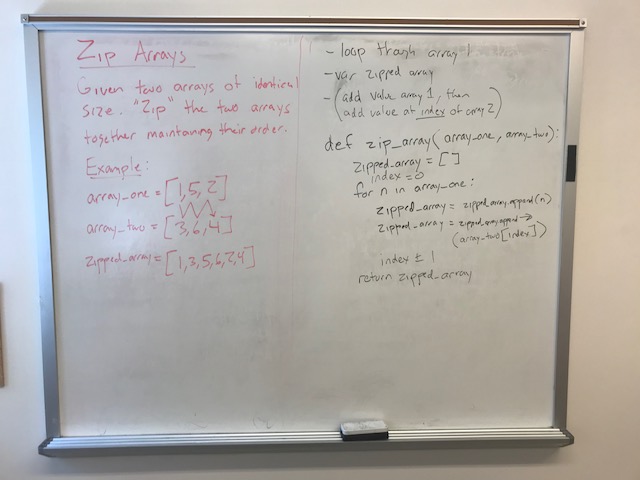 Zip Arrays
Given two arrays of identical
size. "Zip" the two arrays
together maintaning their order.
Example:
array_one = [1,5,2]
array_two = [3,6,4]
zipped_array = [1,3,5,6,2,4]
- loop though array 1
- var zipped array
- (add value array 1, then
add value at index of array 2)
def zip_array(array_one, array_two):
zipped_array = []
index = 0
for n in array_one:
zipped_array = zipped_array.append(n)
zipped_array = zipped_array.append →
(array_two[index])
index ± 1
return zipped_array